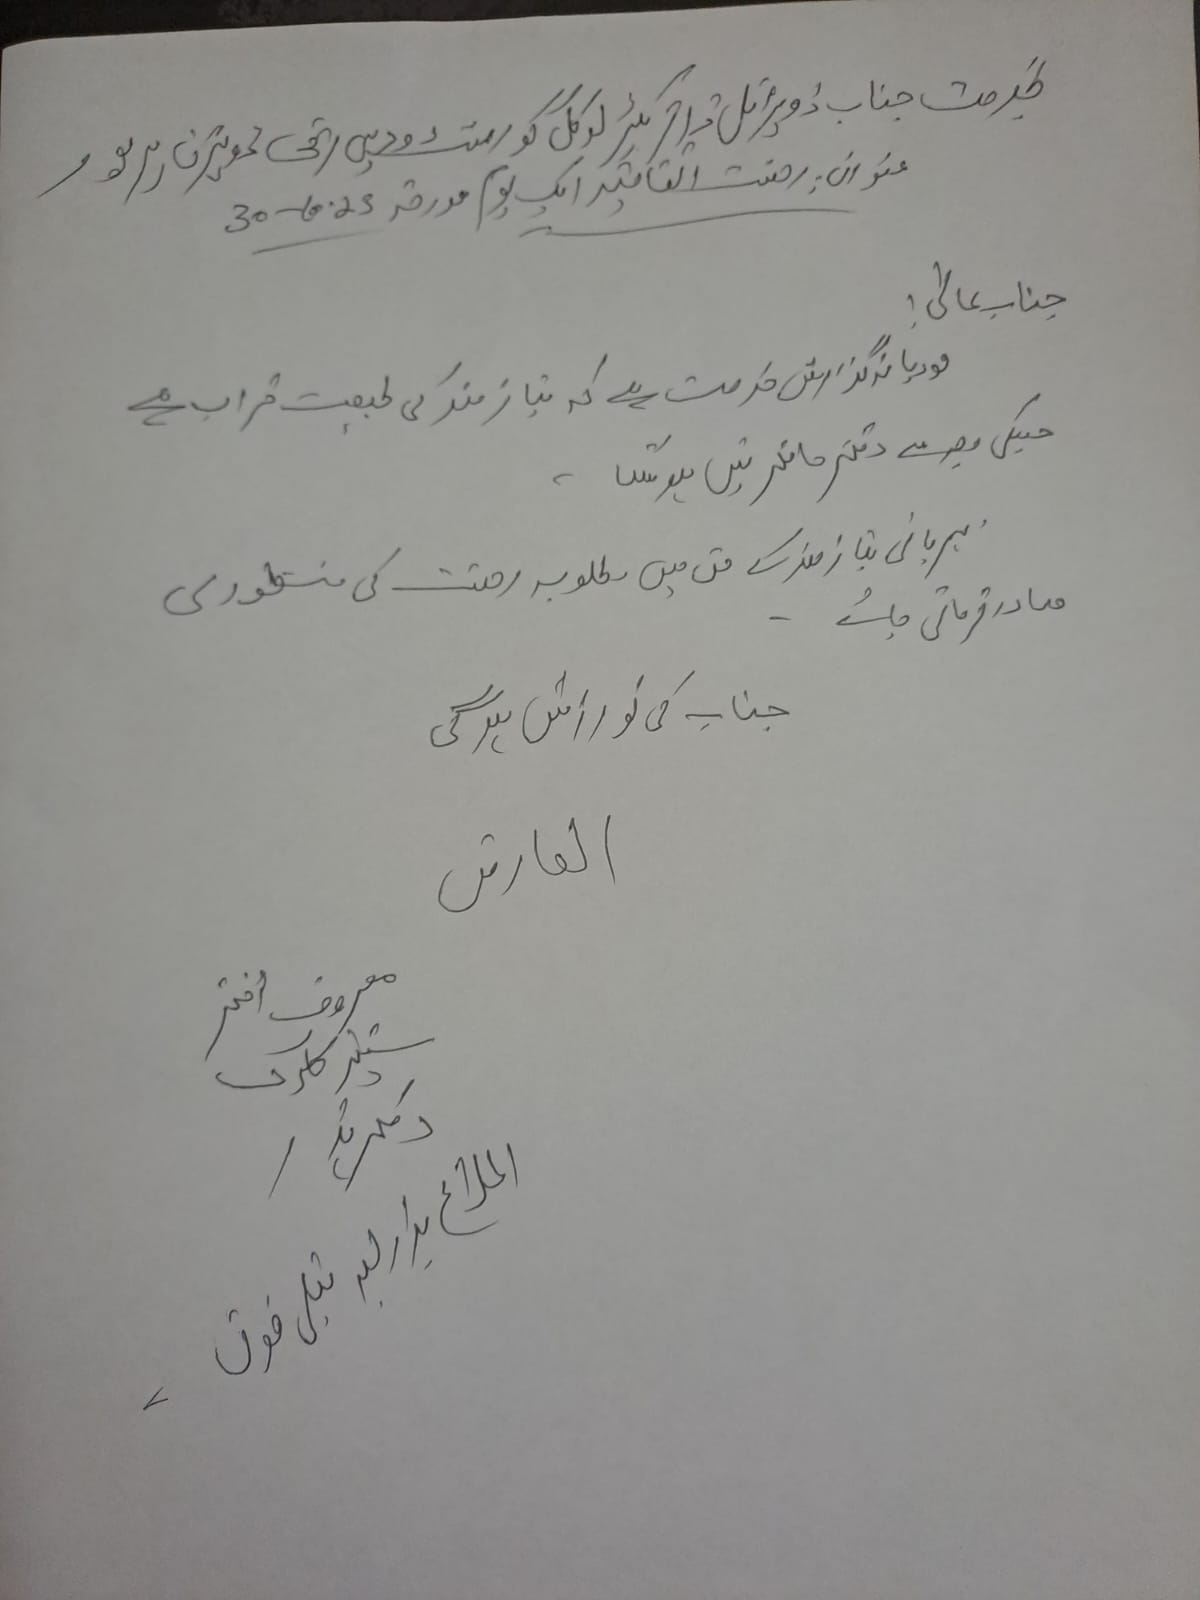 بخدمت جناب ڈویژنل ڈائریکٹر لوکل گورنمنٹ و دیہی ترقی ڈویژن میرپور
عنوان:۔ رخصت اتفاقیہ ایک یوم مورخہ 30-6-23
جناب عالی!
مودبانہ گذارش خدمت ہے کہ نیازمند کی طبیعت خراب ہے
جسکی وجہ سے دفتر حاضر نہیں ہو سکتا ۔
مہربانی نیازمند کے حق میں مطلوبہ رخصت کی منظوری
صادر فرمائی جائے ۔
جناب کی نوازش ہوگی
العارض
معروف اختر
سینئر کلرک
دفتر ہذا
اطلاع بذریعہ ٹیلی فون